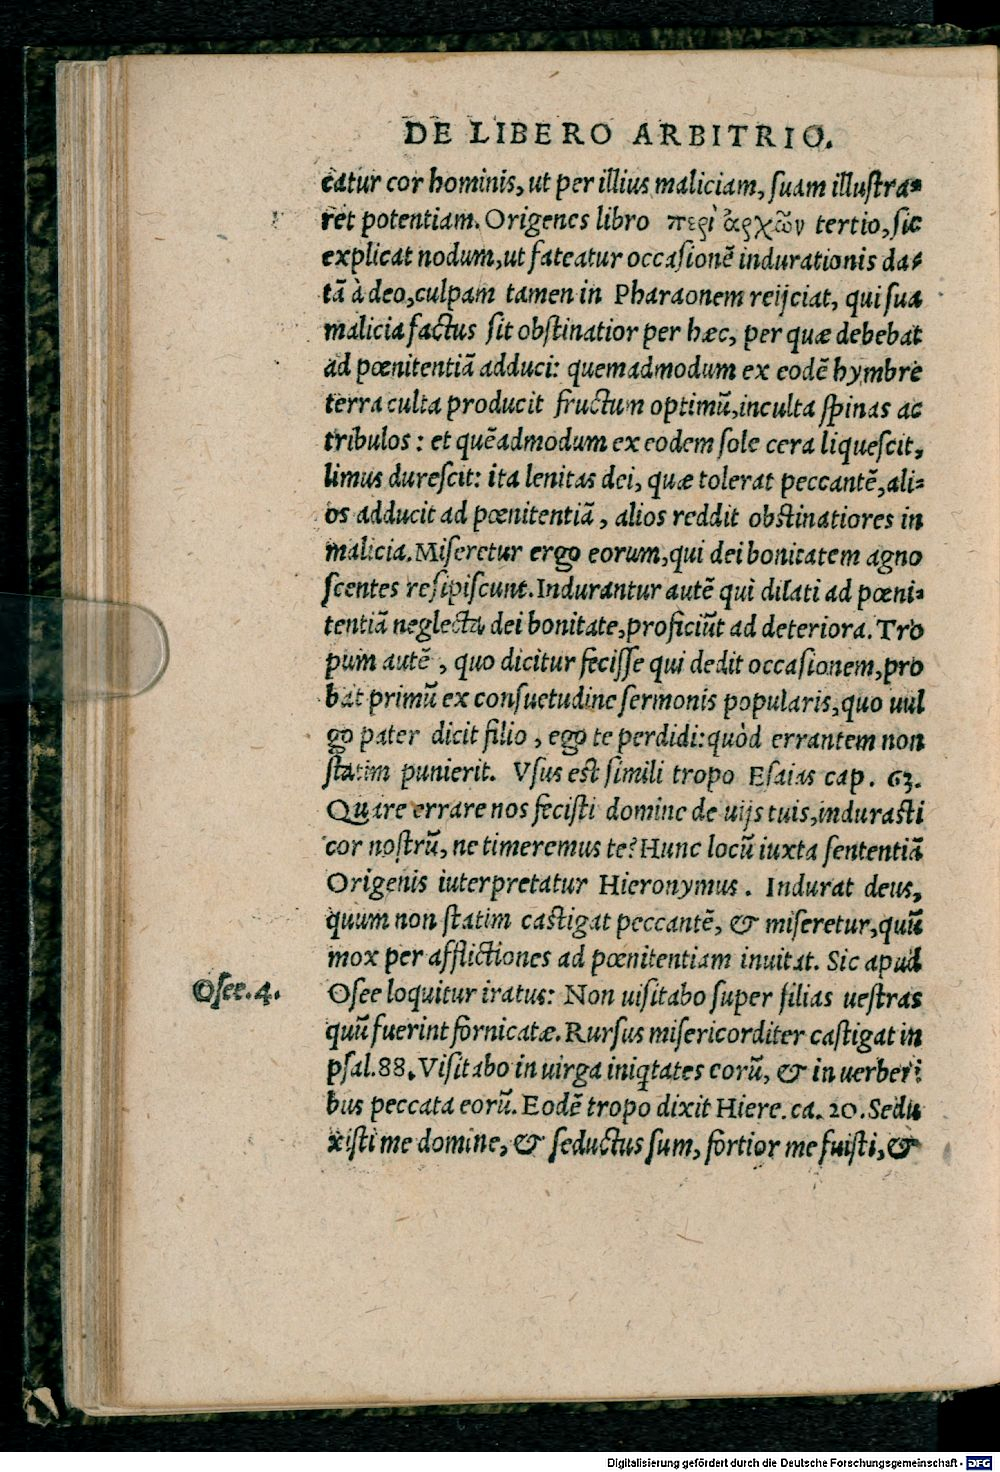 DE LIBERO ARBITRIO.
catur cor hominis, ut per illius maliciam, suam illustra=
ret potentiam. Origenes libro περὶ ἀρχῶν tertio, sic
explicat nodum, ut fateatur occasionē indurationis da=
tā à deo, culpam tamen in Pharaonem reijciat, qui sua
malicia factus sit obstinatior per hæc, per quæ debebat
ad pœnitentiā adduci: quemadmodum ex eodē hymbre
terra culta producit fructum optimū, inculta spinas ac
tribulos: et quēadmodum ex eodem sole cera liquescit,
limus durescit: ita lenitas dei, quæ tolerat peccantē, ali=
os adducit ad pœnitentiā, alios reddit obstinatiores in
malicia. Miseretur ergo eorum, qui dei bonitatem agno
scentes resipiscunt. Indurantur autē qui dilati ad pœni=
tentiā neglecta dei bonitate, proficiūt ad deteriora. Tro
pum autē, quo dicitur fecisse qui dedit occasionem, pro
bat primū ex consuetudine sermonis popularis, quo uul
go pater dicit filio, ego te perdidi: quòd errantem non
statim punierit. Vsus est simili tropo Esaias cap. 63.
Quare errare nos fecisti domine de uijs tuis, indurasti
cor nostrū, ne timeremus te? Hunc locū iuxta sententiā
Origenis iuterpretatur Hieronymus. Indurat deus,
quum non statim castigat peccantē, & miseretur, quū
mox per afflictiones ad pœnitentiam inuitat. Sic apud
Osee. 4.
Osee loquitur iratus: Non uisitabo super filias uestras
quū fuerint fornicatæ. Rursus misericorditer castigat in
psal. 88. Visitabo in uirga iniqtates eorū, & in uerberi
bus peccata eorū. Eodē tropo dixit Hiere. ca. 20. Sedu
xisti me domine, & seductus sum, fortior me fuisti, &
Digitalisierung gefördert durch die Deutsche Forschungsgemeinschaft - DFG